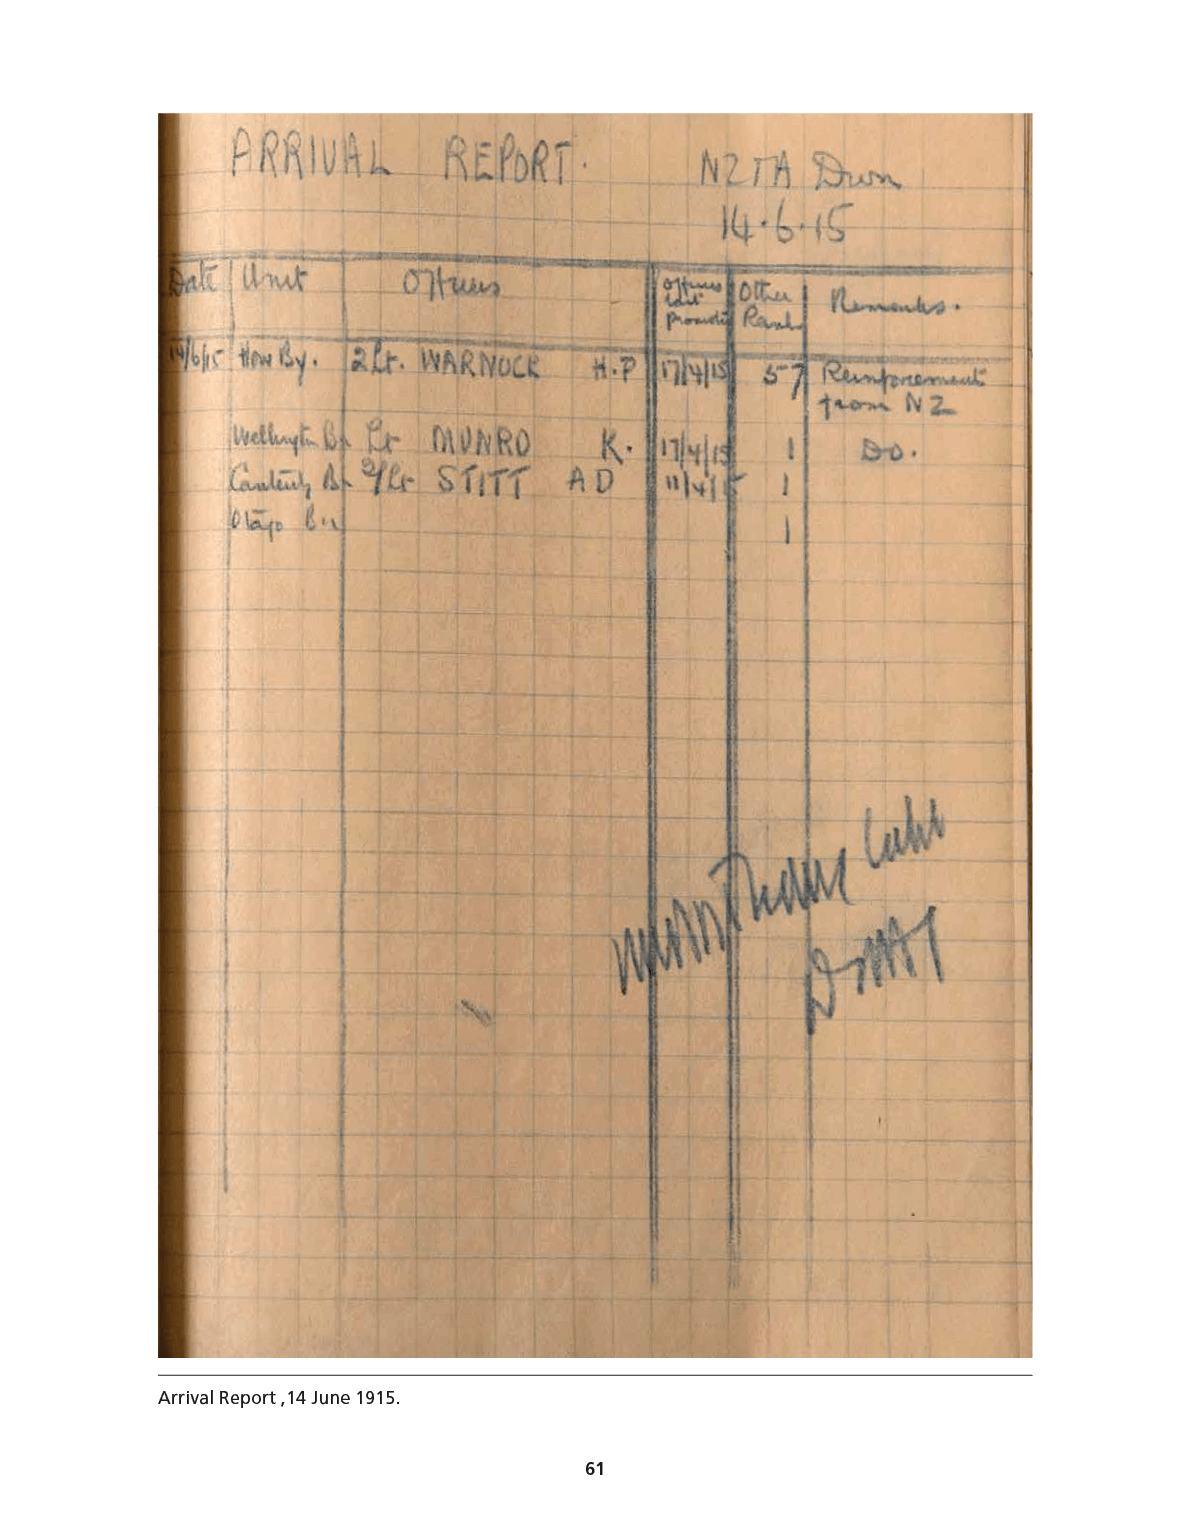 ARRIVAL REPORT. NZ&A Divn
14.6.15
Date Unit Officers Officers last promoted Other Ranks Remarks.
14/6/15 How By. 2 Lt. WARNOCK H.P 17/4/15 57 Reinforcement
from NZ
Wellington Bn Lt MUNRO K. 17/4/15 1 Do.
Canterby Bn 2/Lt STITT A D 11/4/15 1
Otago Bn 1
Capt
Arrival Report ,14 June 1915.
61